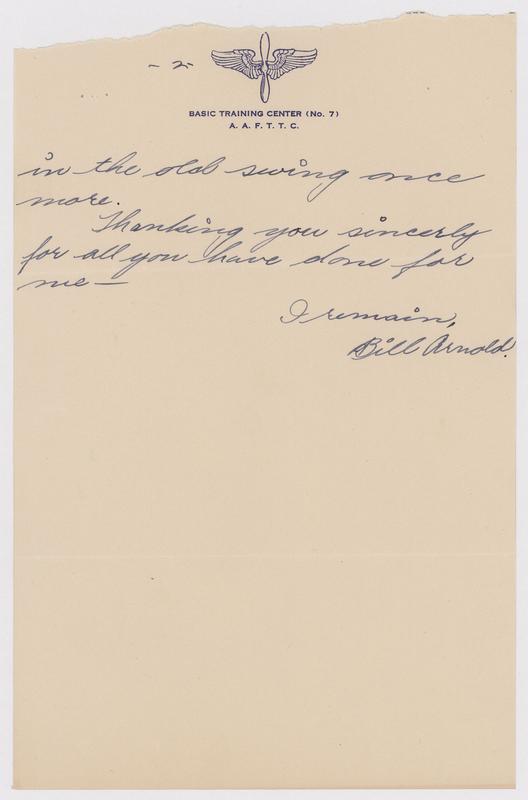 - 2 -
BASIC TRAINING CENTER (No. 7)
A. A. F. T. T. C.
in the old swing once
more.
Thanking you sincerly
for all you have done for
me—
I remain,
Bill Arnold.